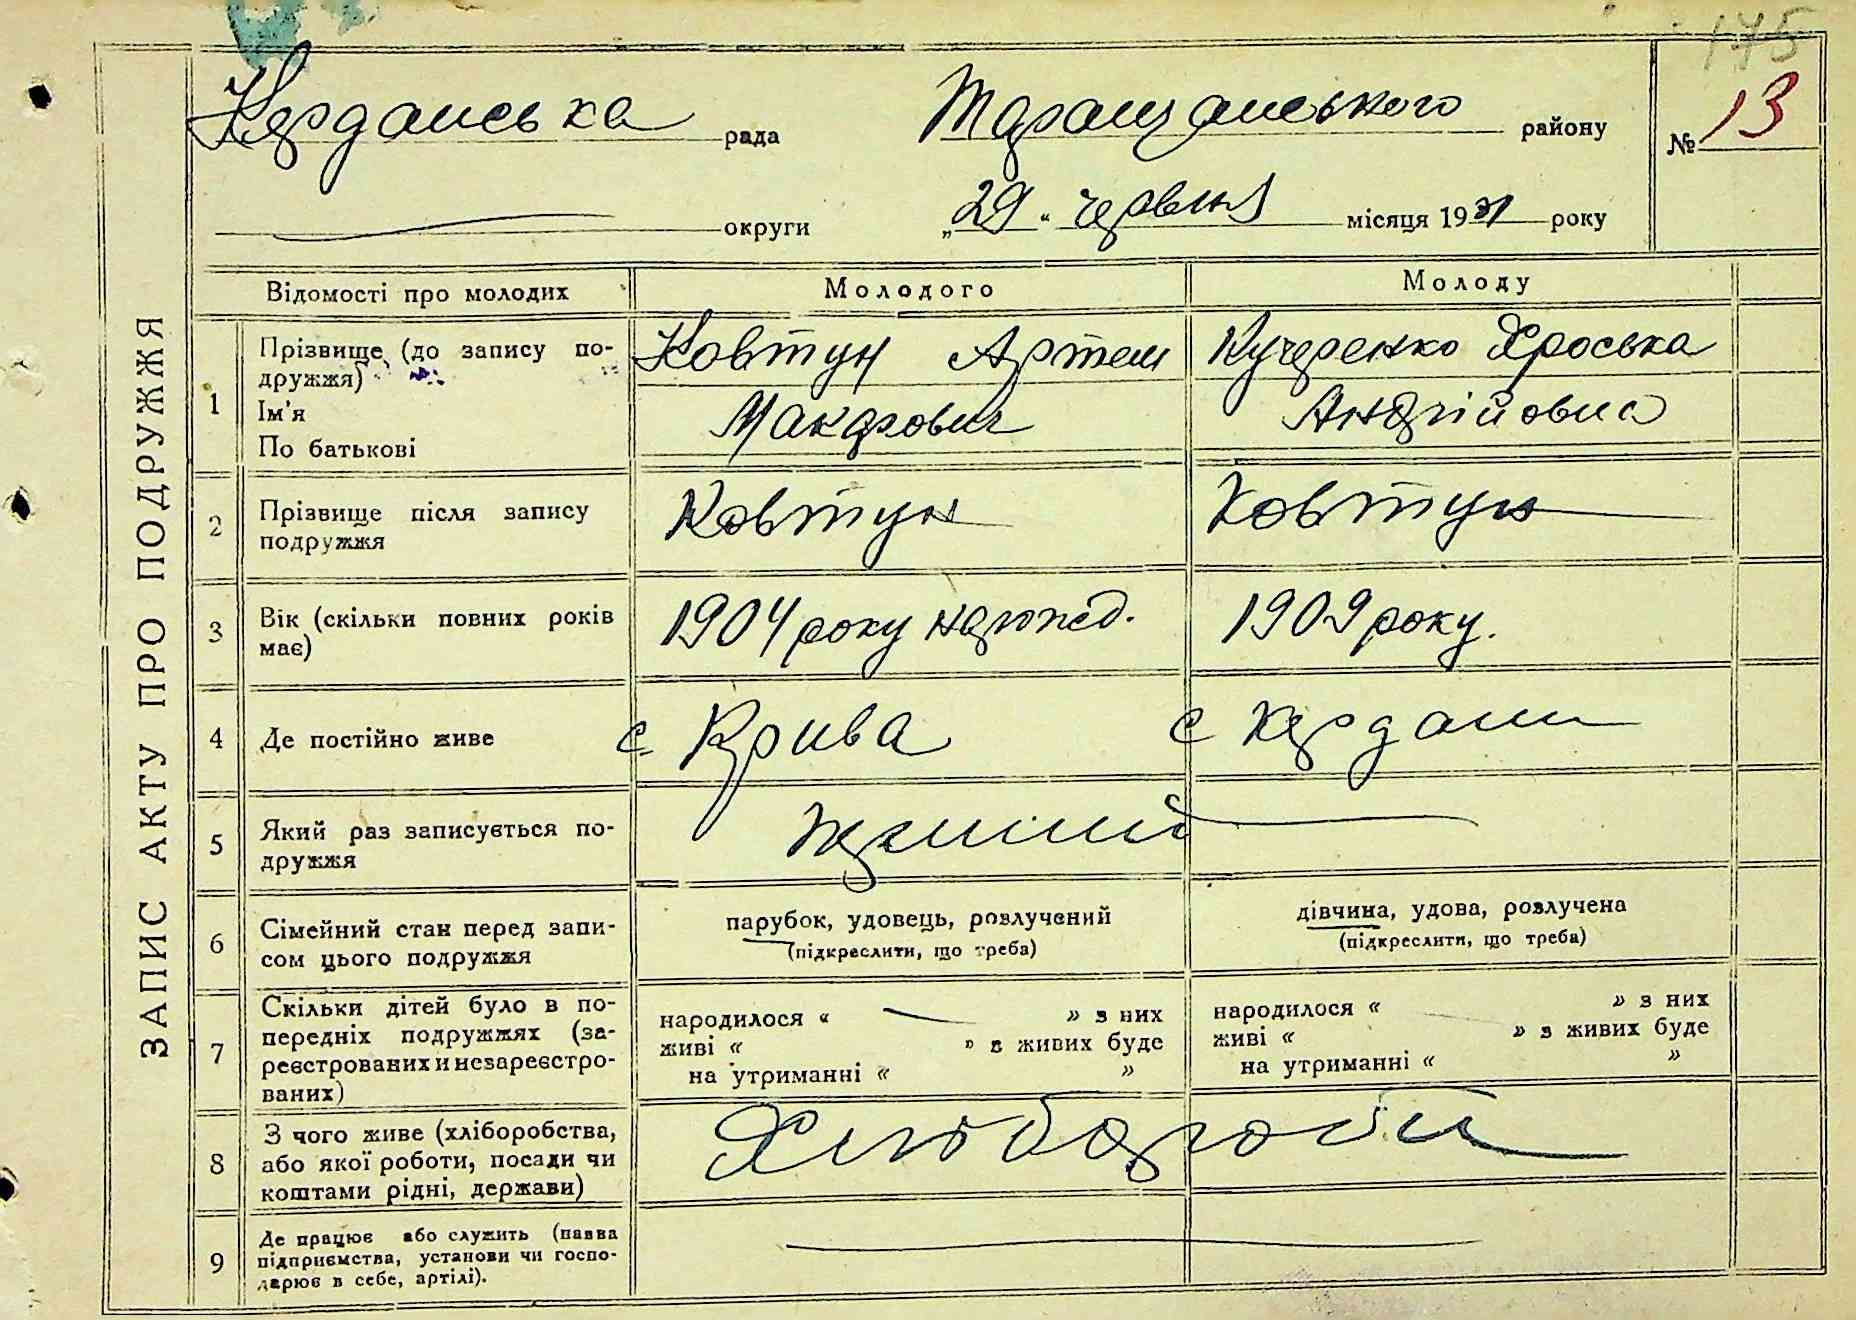 175
Керданська рада Таращанського району № 13
округи „29“ червня місяця 1931 року
ЗАПИС АКТУ ПРО ПОДРУЖЖЯ
Відомості про молодих Молодого Молоду
1 Прізвище (до запису по-
дружжя)
Ім'я
По батькові
Ковтун Артем
Макарович
Кучеренко Хроська
Андрійовна
2 Прізвище після запису
подружжя
Ковтун
Ковтун
3 Вік (скільки повних років
має)
1904 року
1909 року.
4 Де постійно живе
с Крива
с Кердани
5 Який раз записується по-
дружжя
6 Сімейний стан перед запи-
сом цього подружжя
парубок, удовець, розлучений
(підкреслити, що треба)
дівчина, удова, розлучена
(підкреслити, що треба)
7 Скільки дітей було в по-
передніх подружжях (за-
реєстрованих и незареєстро-
ваних)
народилося « » з них
живі « » з живих буде
на утриманні « »
народилося « » з них
живі « » з живих буде
на утриманні « »
8 З чого живе (хліборобства,
або якої роботи, посади чи
коштами рідні, держави)
Хлібороби
9 Де працює або служить (назва
підприємства, установи чи госпо-
дарює в себе, артілі).